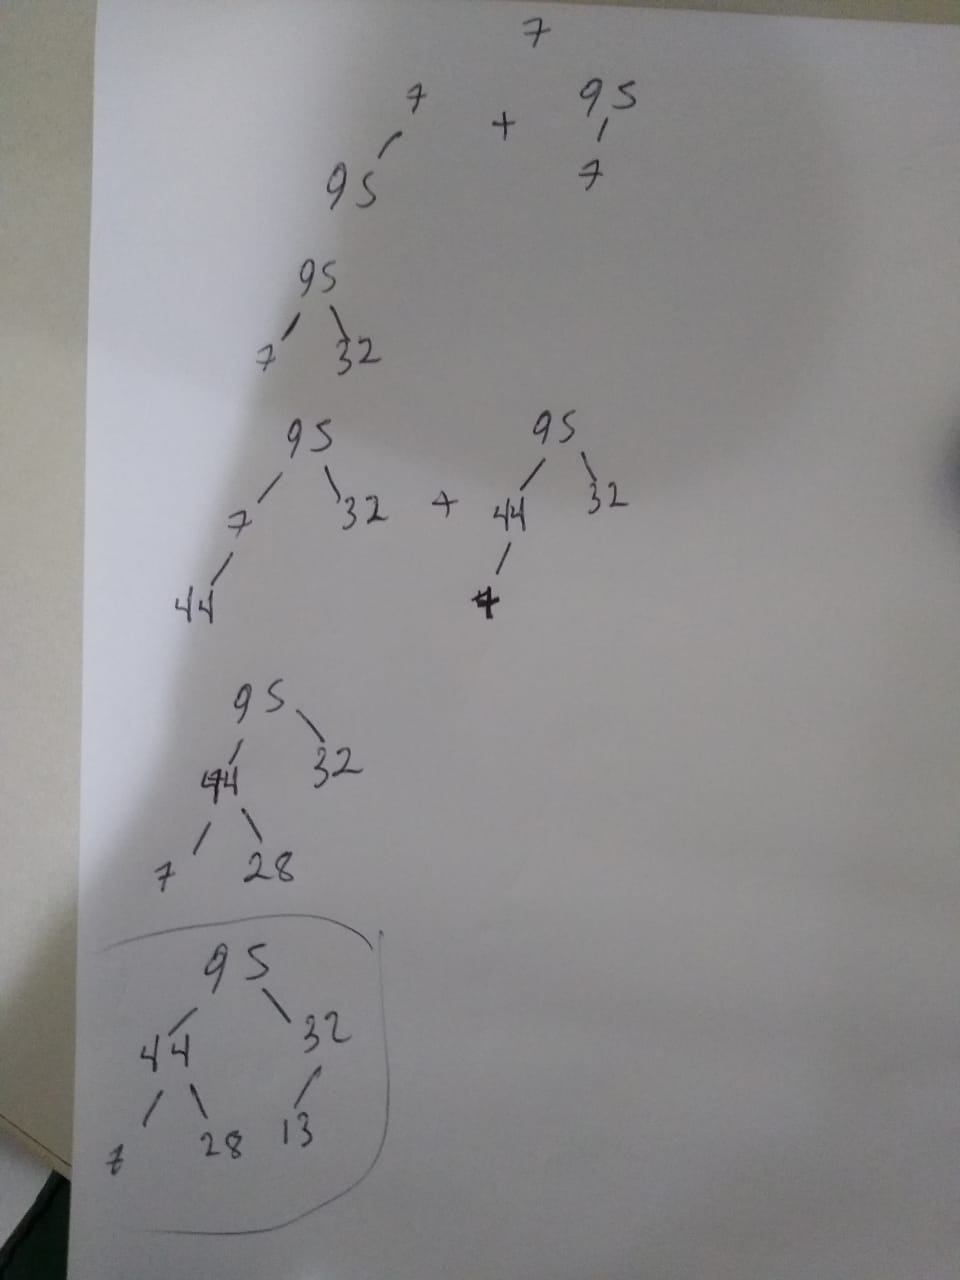 7
7 + 95
95 7
95
7 32
95 + 95
7 32 44 32
44
95
44 32
7 28
95
44 32
7 28 13